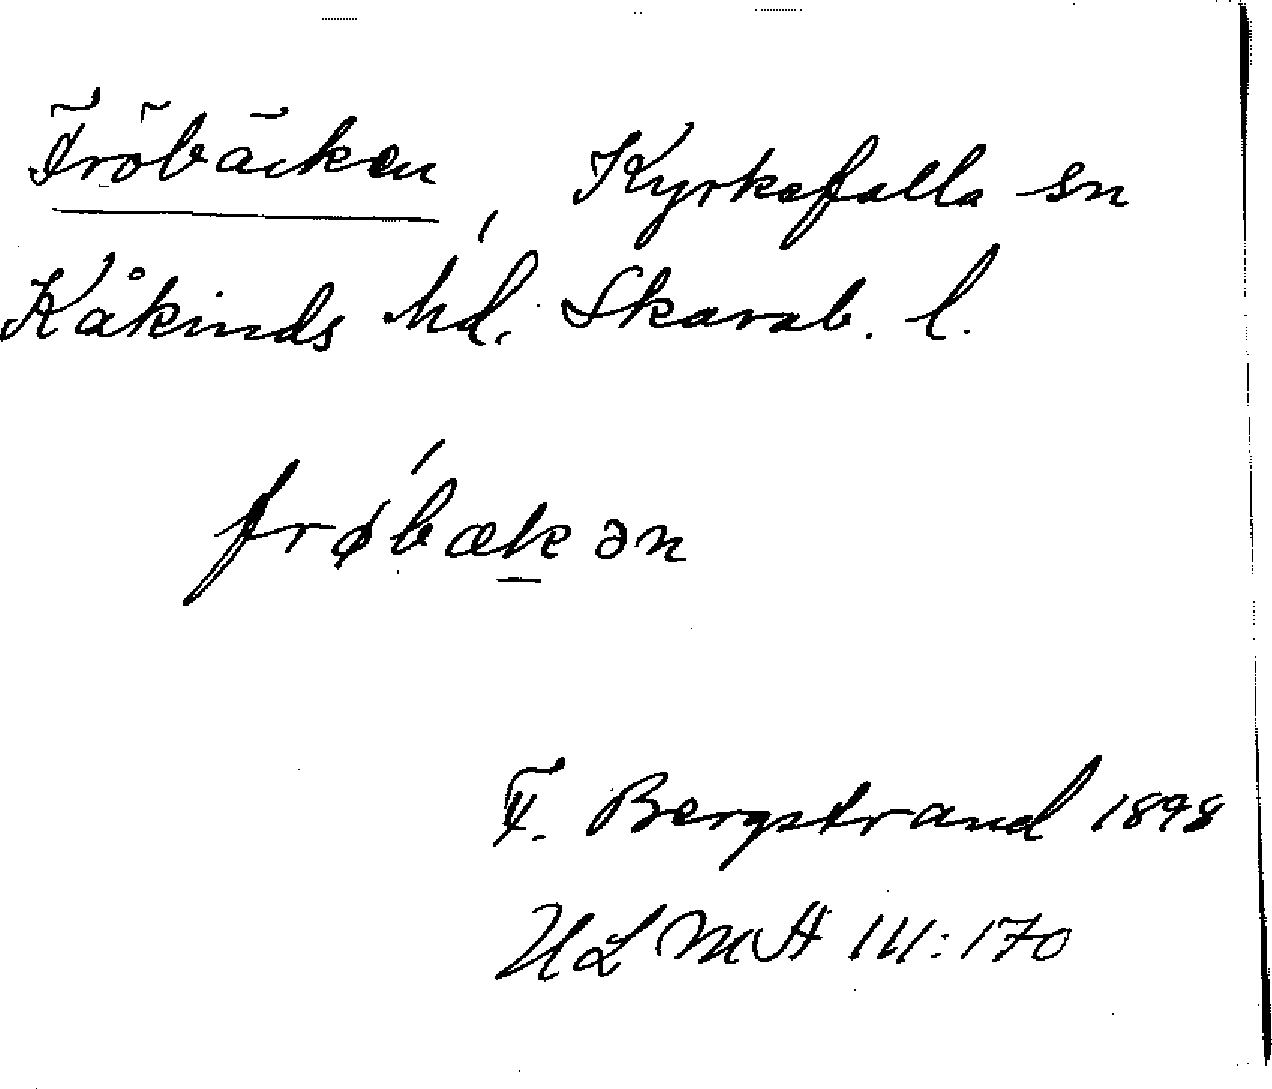 Fröbäcken, Kyrkefalla sn
Kåkinds hd. Skarab. l.
frǿbækən
F. Bergstrand 1898
ULMA 111:170